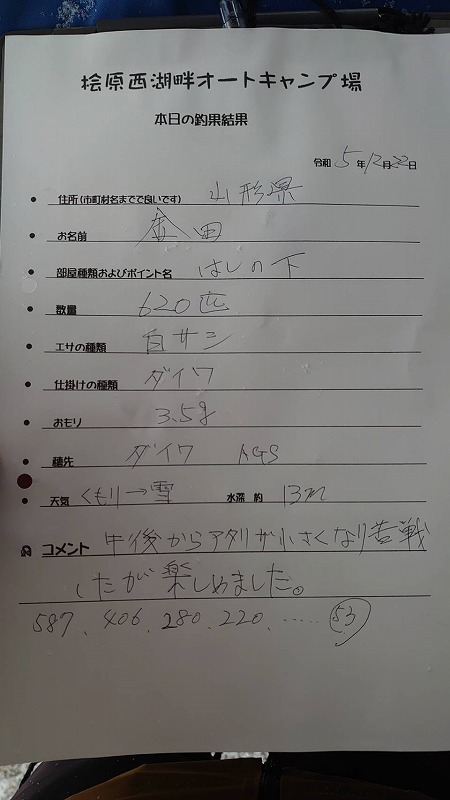 桧原西湖畔オートキャンプ場
本日の釣果結果
令和 5年12月22日
住所(市町村名までで良いです) 山形県
お名前 金田
部屋種類およびポイント名 はしの下
数量 620匹
エサの種類 白サシ
仕掛けの種類 ダイワ
おもり 3.5g
穂先 ダイワ AGS
天気 くもり→雪 水深 約 13m
コメント 午後からアタリが小さくなり苦戦
したが楽しめました。
587、406、280、220、…… 53